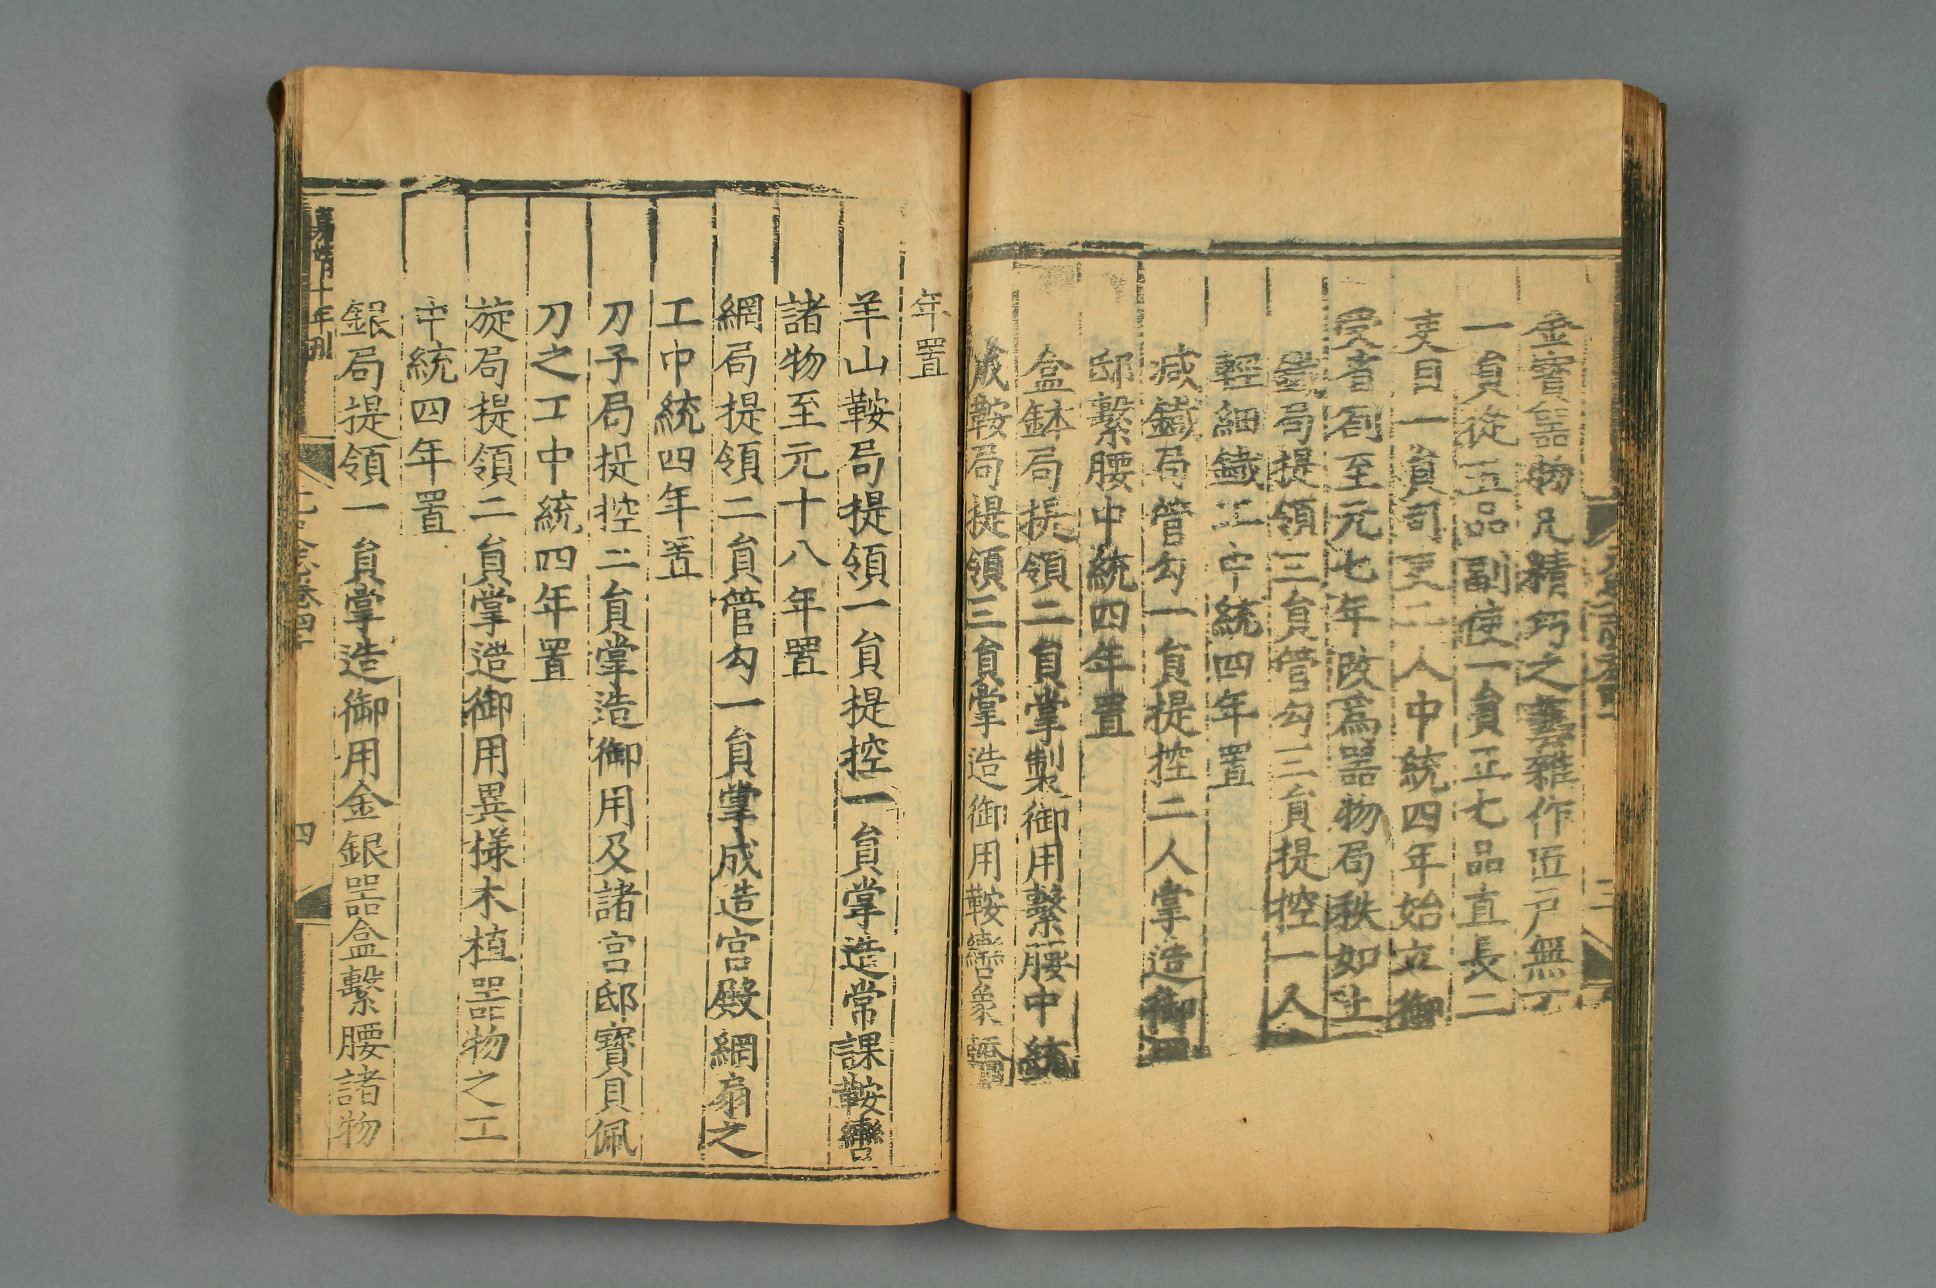 金寶器物凡精巧之藝雜作匠戸無不
一員從五品副使一員正七品直長二
吏目一員司吏二人中統四年始立御
受者創至元七年改爲器物局秩如上
鐵局提領三員管勾三員提控一人
輕細鐵工中統四年置
減鐵局管勾一員提控二人掌造御
邸繫腰中統四年置
盒鉢局提領二員掌製御用繫腰中統
成鞍局提領三員掌造御用鞍轡象轎
三
年置
羊山鞍局提領一員提控一員掌造常課鞍轡
諸物至元十八年置
網局提領二員管勾一員掌成造宮殿網扇之
工中統四年置
刀子局提控二員掌造御用及諸宮邸寶貝佩
刀之工中統四年置
旋局提領二員掌造御用異様木植器物之工
中統四年置
銀局提領一員掌造御用金銀器盒繫腰諸物
嘉靖十年刊
四